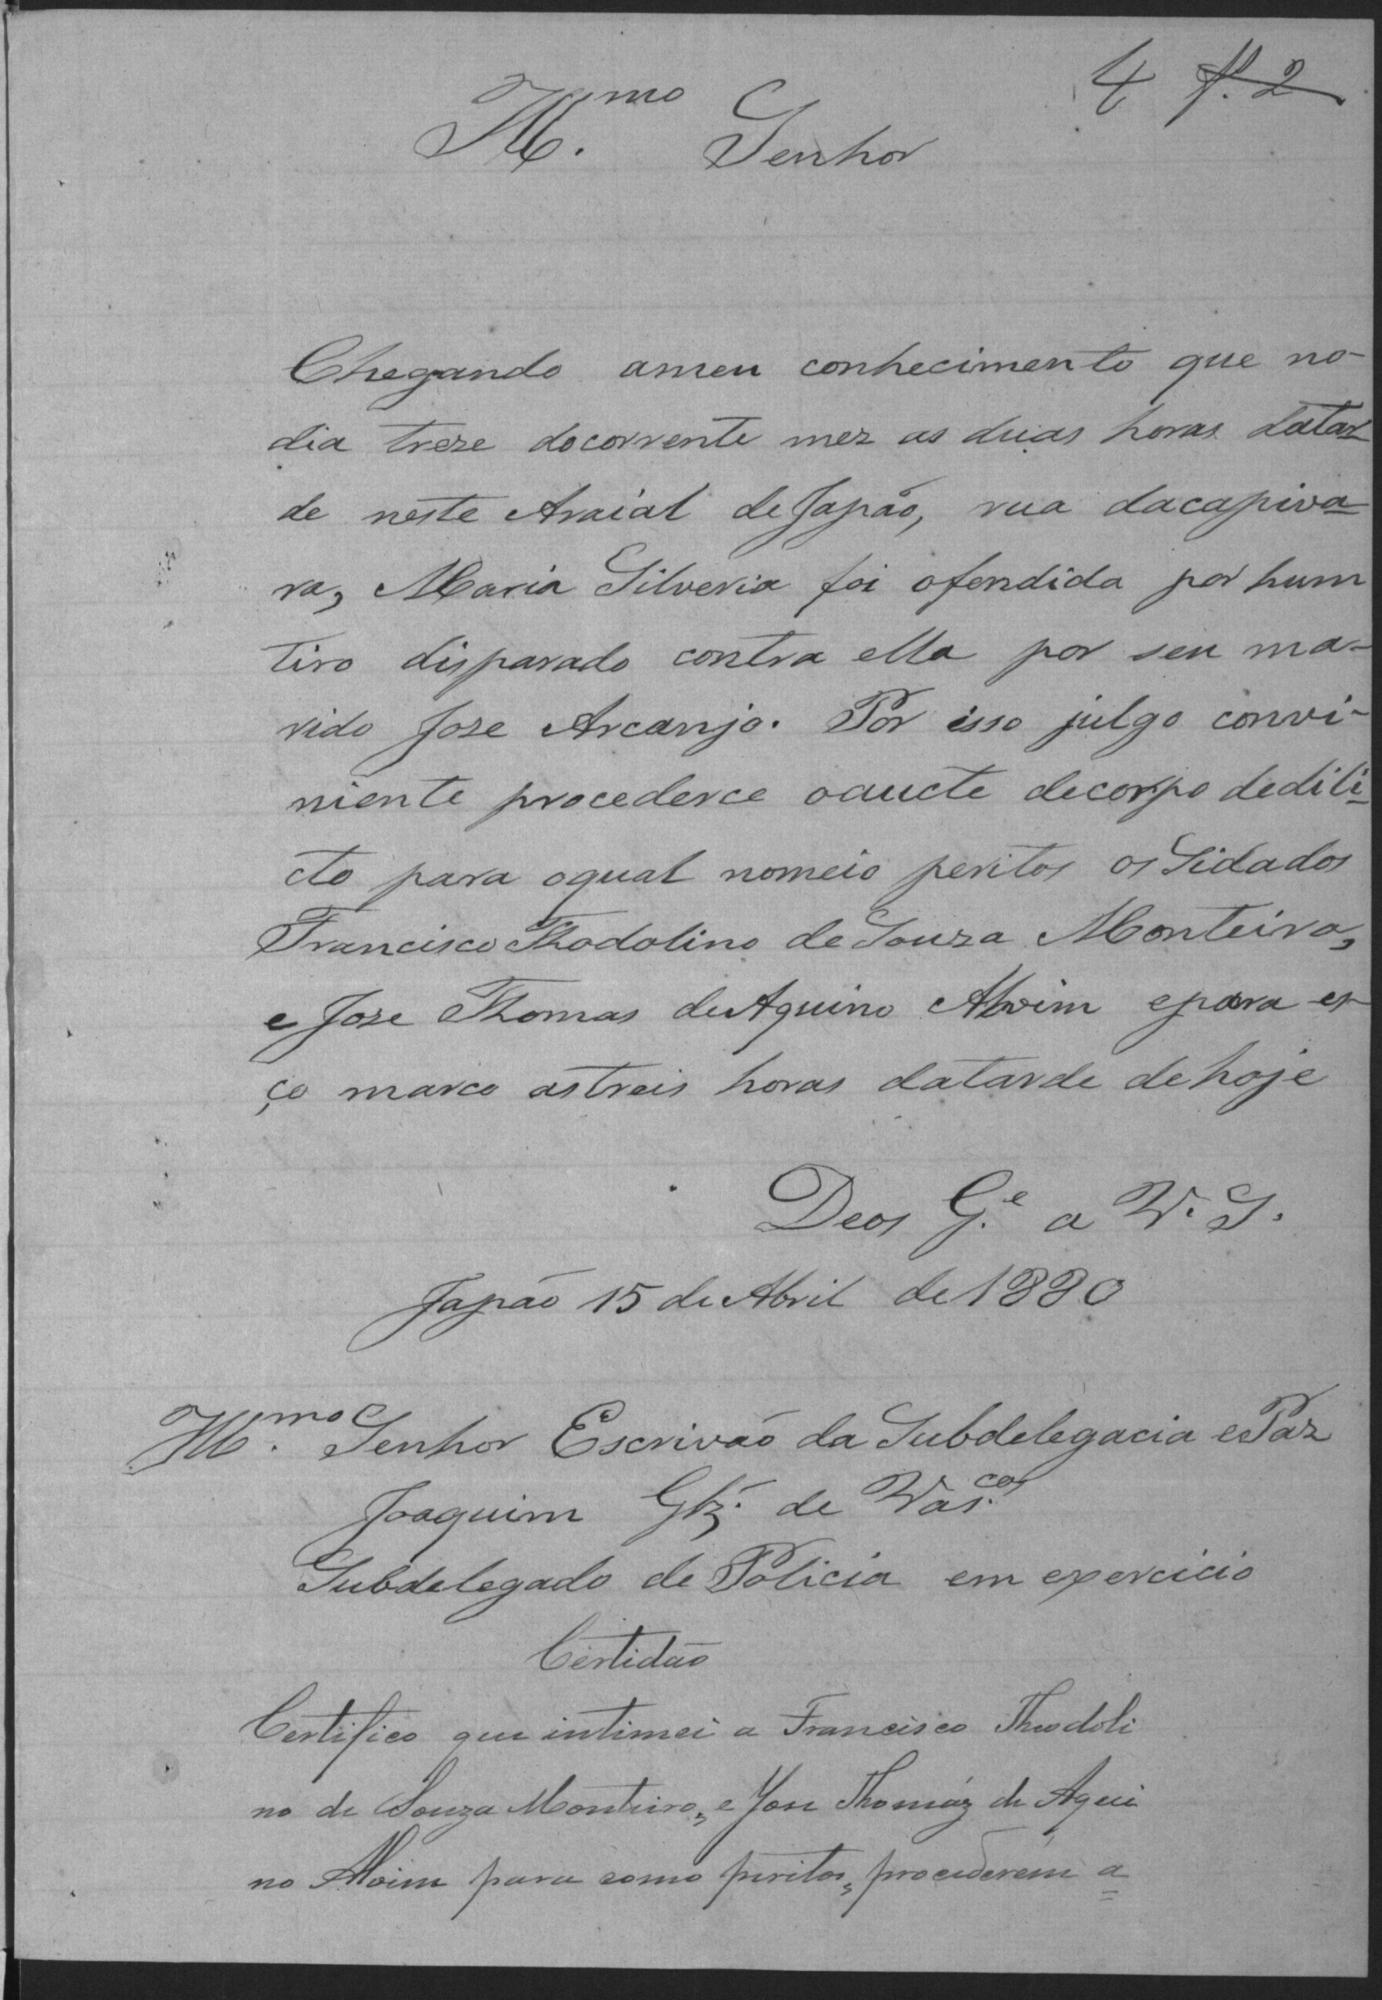 4 f. 2
Illmo. Senhor
Chegando ameu conhecimento que no-
dia treze docorrente mez as duas horas datar
de neste Araial de Japão, rua dacapiva-
ra, Maria Silveria foi ofendida por hum
tiro disparado contra ella por seu ma-
rido Joze Arcanjo. Por isso julgo convi-
niente procederce oaucte decorpo dedili-
cto para oqual nomeio peritos os Sidados
Francisco Thodolino de Souza Monteiro,
e Joze Thomas de Aquino Alvim epara es-
ço marco astreis horas datarde dehoje
Deos G.e a V. S.
Japão 15 de Abril de 1880
Illmo. Senhor Escrivão da Subdelegacia e Paz
Joaquim Glz. de Vas.cos
Subdelegado de Policia em exercicio
Certidão
Certifico que intimei a Francisco Theodoli
no de Souza Monteiro, e Jose Thomáz de Aqui
no Alvim para como peritos, procederem a